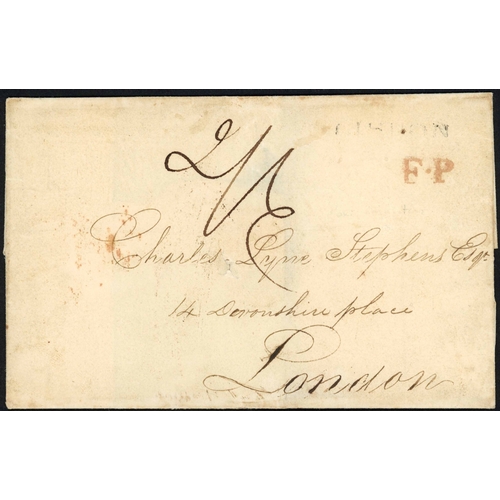 2/6
F·P
Charles Lyne Stephens Esqr.
14 Devonshire place
London